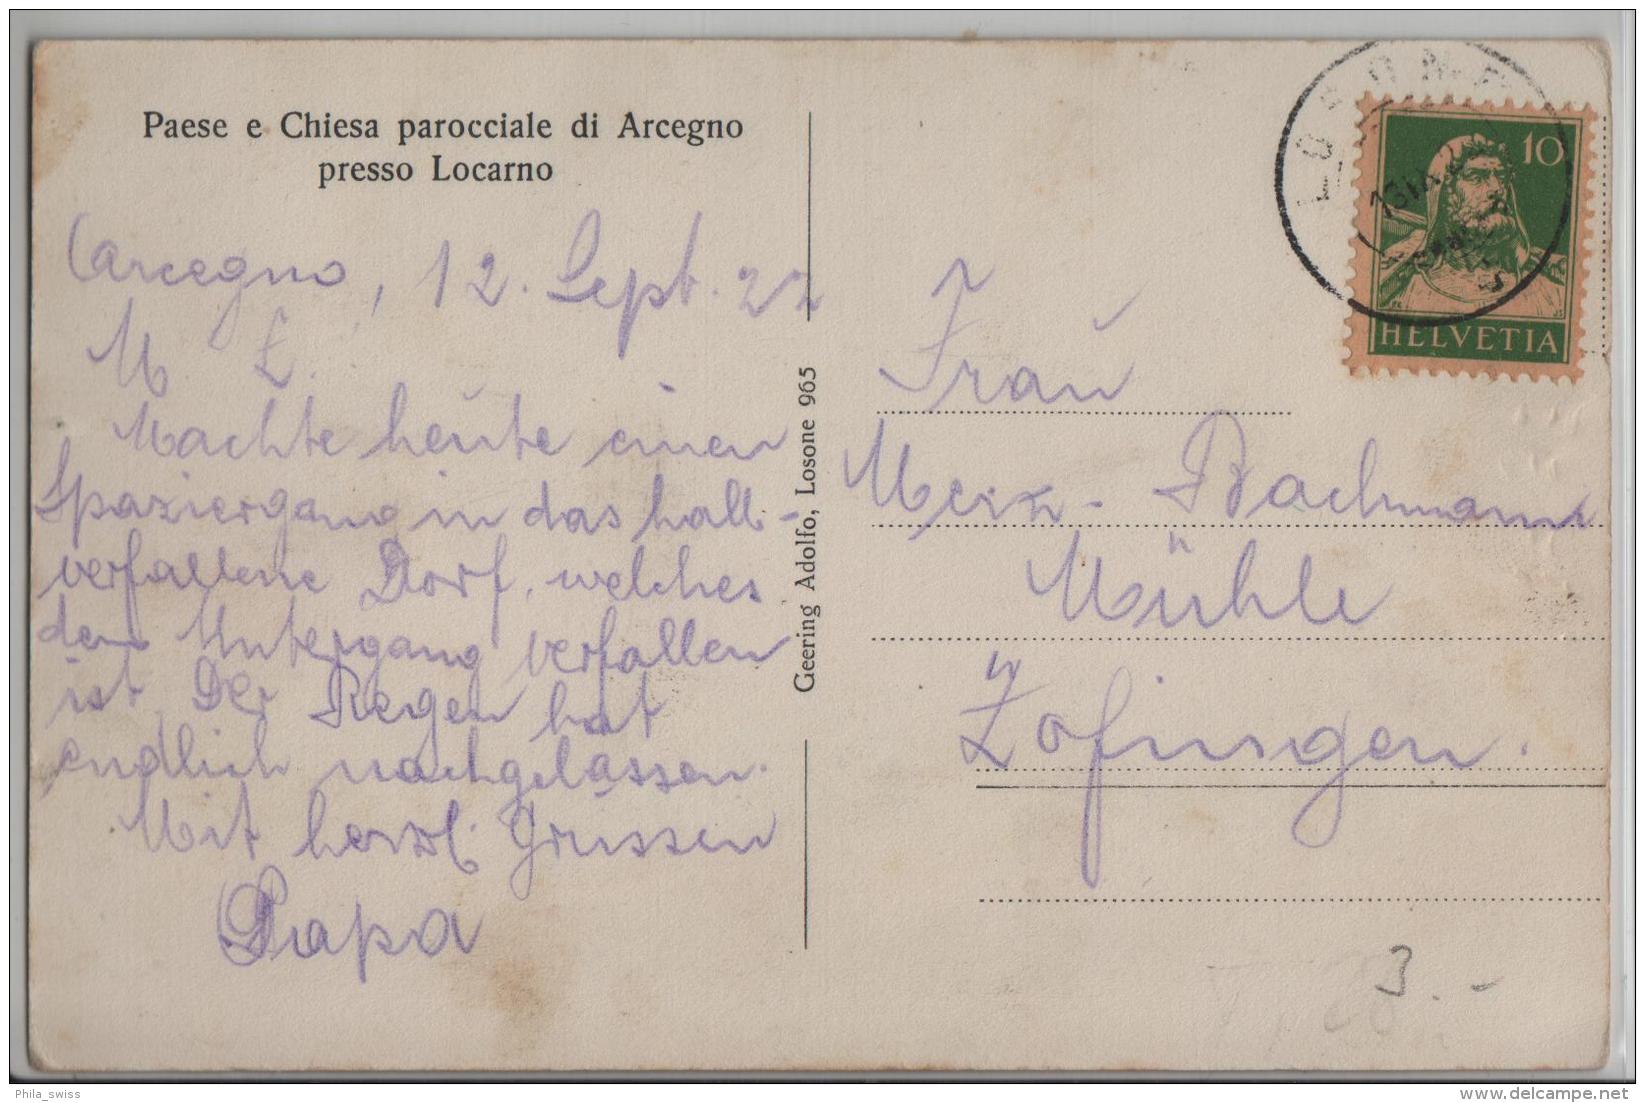 Paese e Chiesa parocciale di Arcegno
presso Locarno
Arcegno, 12. Sept. 22
M. L.
Machte heute einen
Spaziergang in das halb-
verfallene Dorf, welches
dem Untergang verfallen
ist. Der Regen hat
endlich nachgelassen.
Mit herzl. Grüssen
Papa
Geering Adolfo, Losone 965
LOSONE
10
HELVETIA
Frau
Merz-Bachmann
Mühle
Zofingen.
3.-
Phila_swiss
www.delcampe.net